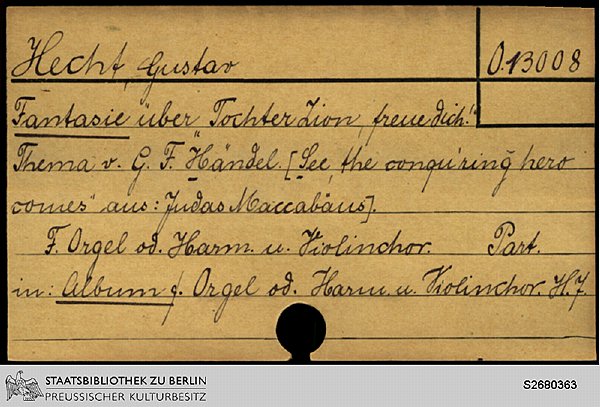 Hecht, Gustav
O. 13008
Fantasie über "Tochter Zion, freue dich."
Thema v. G. F. Händel. [See, the conqu'ring hero
comes" aus: Judas Maccabäus].
F. Orgel od. Harm. u. Violinchor. Part.
in: Album f. Orgel od. Harm. u. Violinchor. H. 7.
STAATSBIBLIOTHEK ZU BERLIN
PREUSSISCHER KULTURBESITZ
S2680363